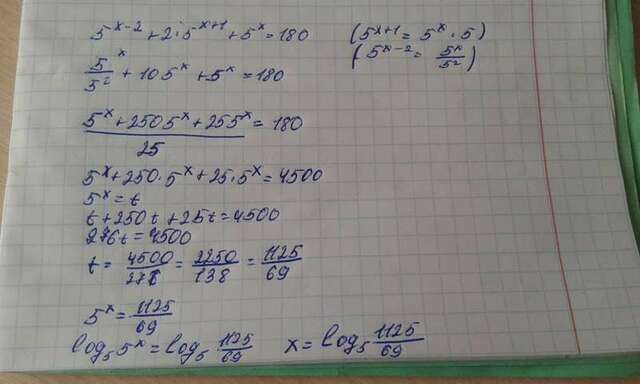 5^(x-2) + 2·5^(x+1) + 5^x = 180 (5^(x+1) = 5^x · 5)
(5^(x-2) = 5^x/5^2)
5^x/5^2 + 10 5^x + 5^x = 180
(5^x + 250 5^x + 25 5^x)/25 = 180
5^x + 250·5^x + 25·5^x = 4500
5^x = t
t + 250t + 25t = 4500
276t = 4500
t = 4500/276 = 2250/138 = 1125/69
5^x = 1125/69
log_5 5^x = log_5 1125/69 x = log_5 1125/69